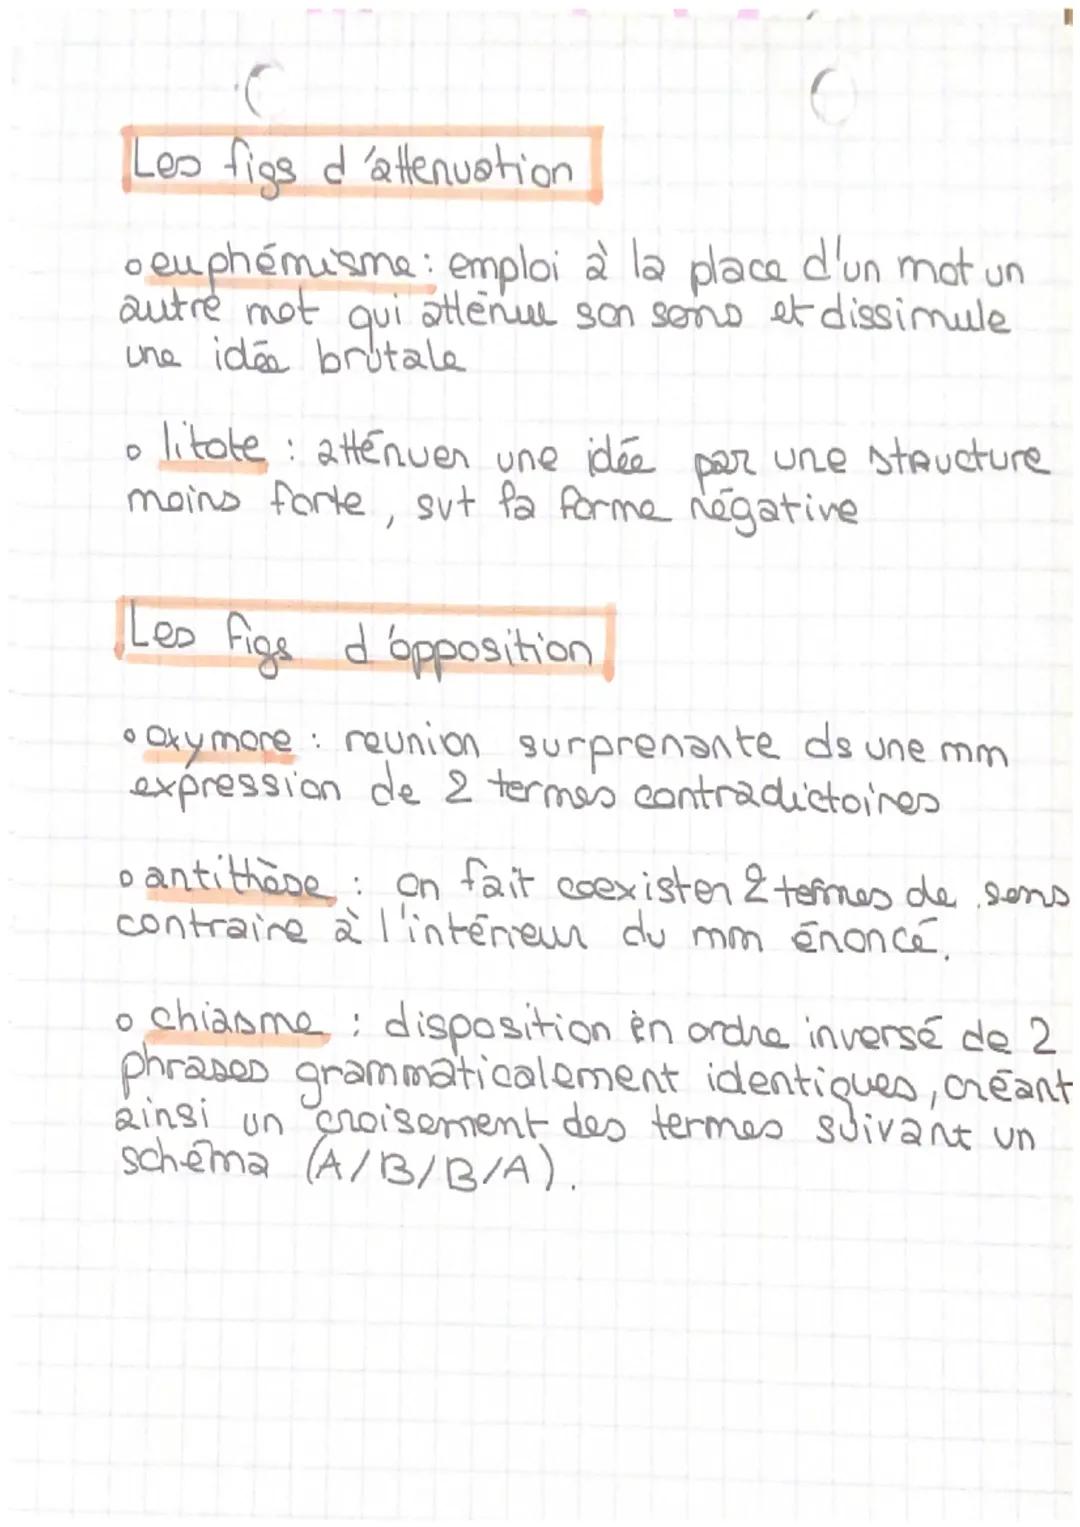 Les figs d'attenuation
euphémisme : emploi à la place d'un mot un
autre mot qui atténue son sens et dissimule
une idée brutale
litote : atténuer une idée par une structure
moins forte, svt la forme négative
Les figs d'opposition
oxymore : reunion surprenante ds une mm
expression de 2 termes contradictoires
antithèse : on fait coexister 2 termes de sens
contraire à l'intérieur du mm énoncé.
chiasme : disposition en ordre inversé de 2
phrases grammaticalement identiques, créant
ainsi un croisement des termes suivant un
schéma (A/B/B/A).